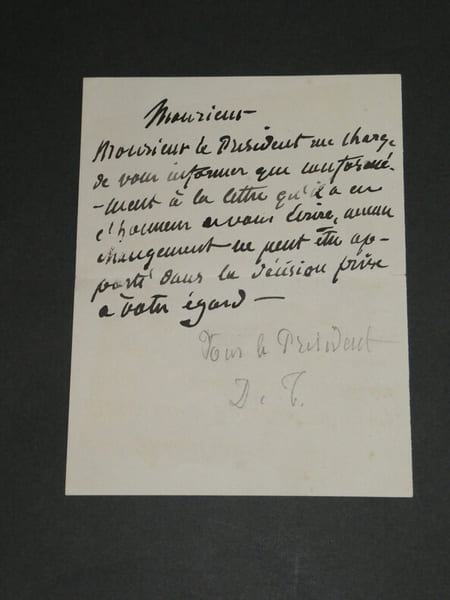 Monsieur
Monsieur le Président me charge
de vous informer que conformé-
-ment à la lettre qu'il a eu
l'honneur de vous écrire, aucun
changement ne peut être ap-
porté dans la décision prise
à votre égard —
Pour le Président
D. T.